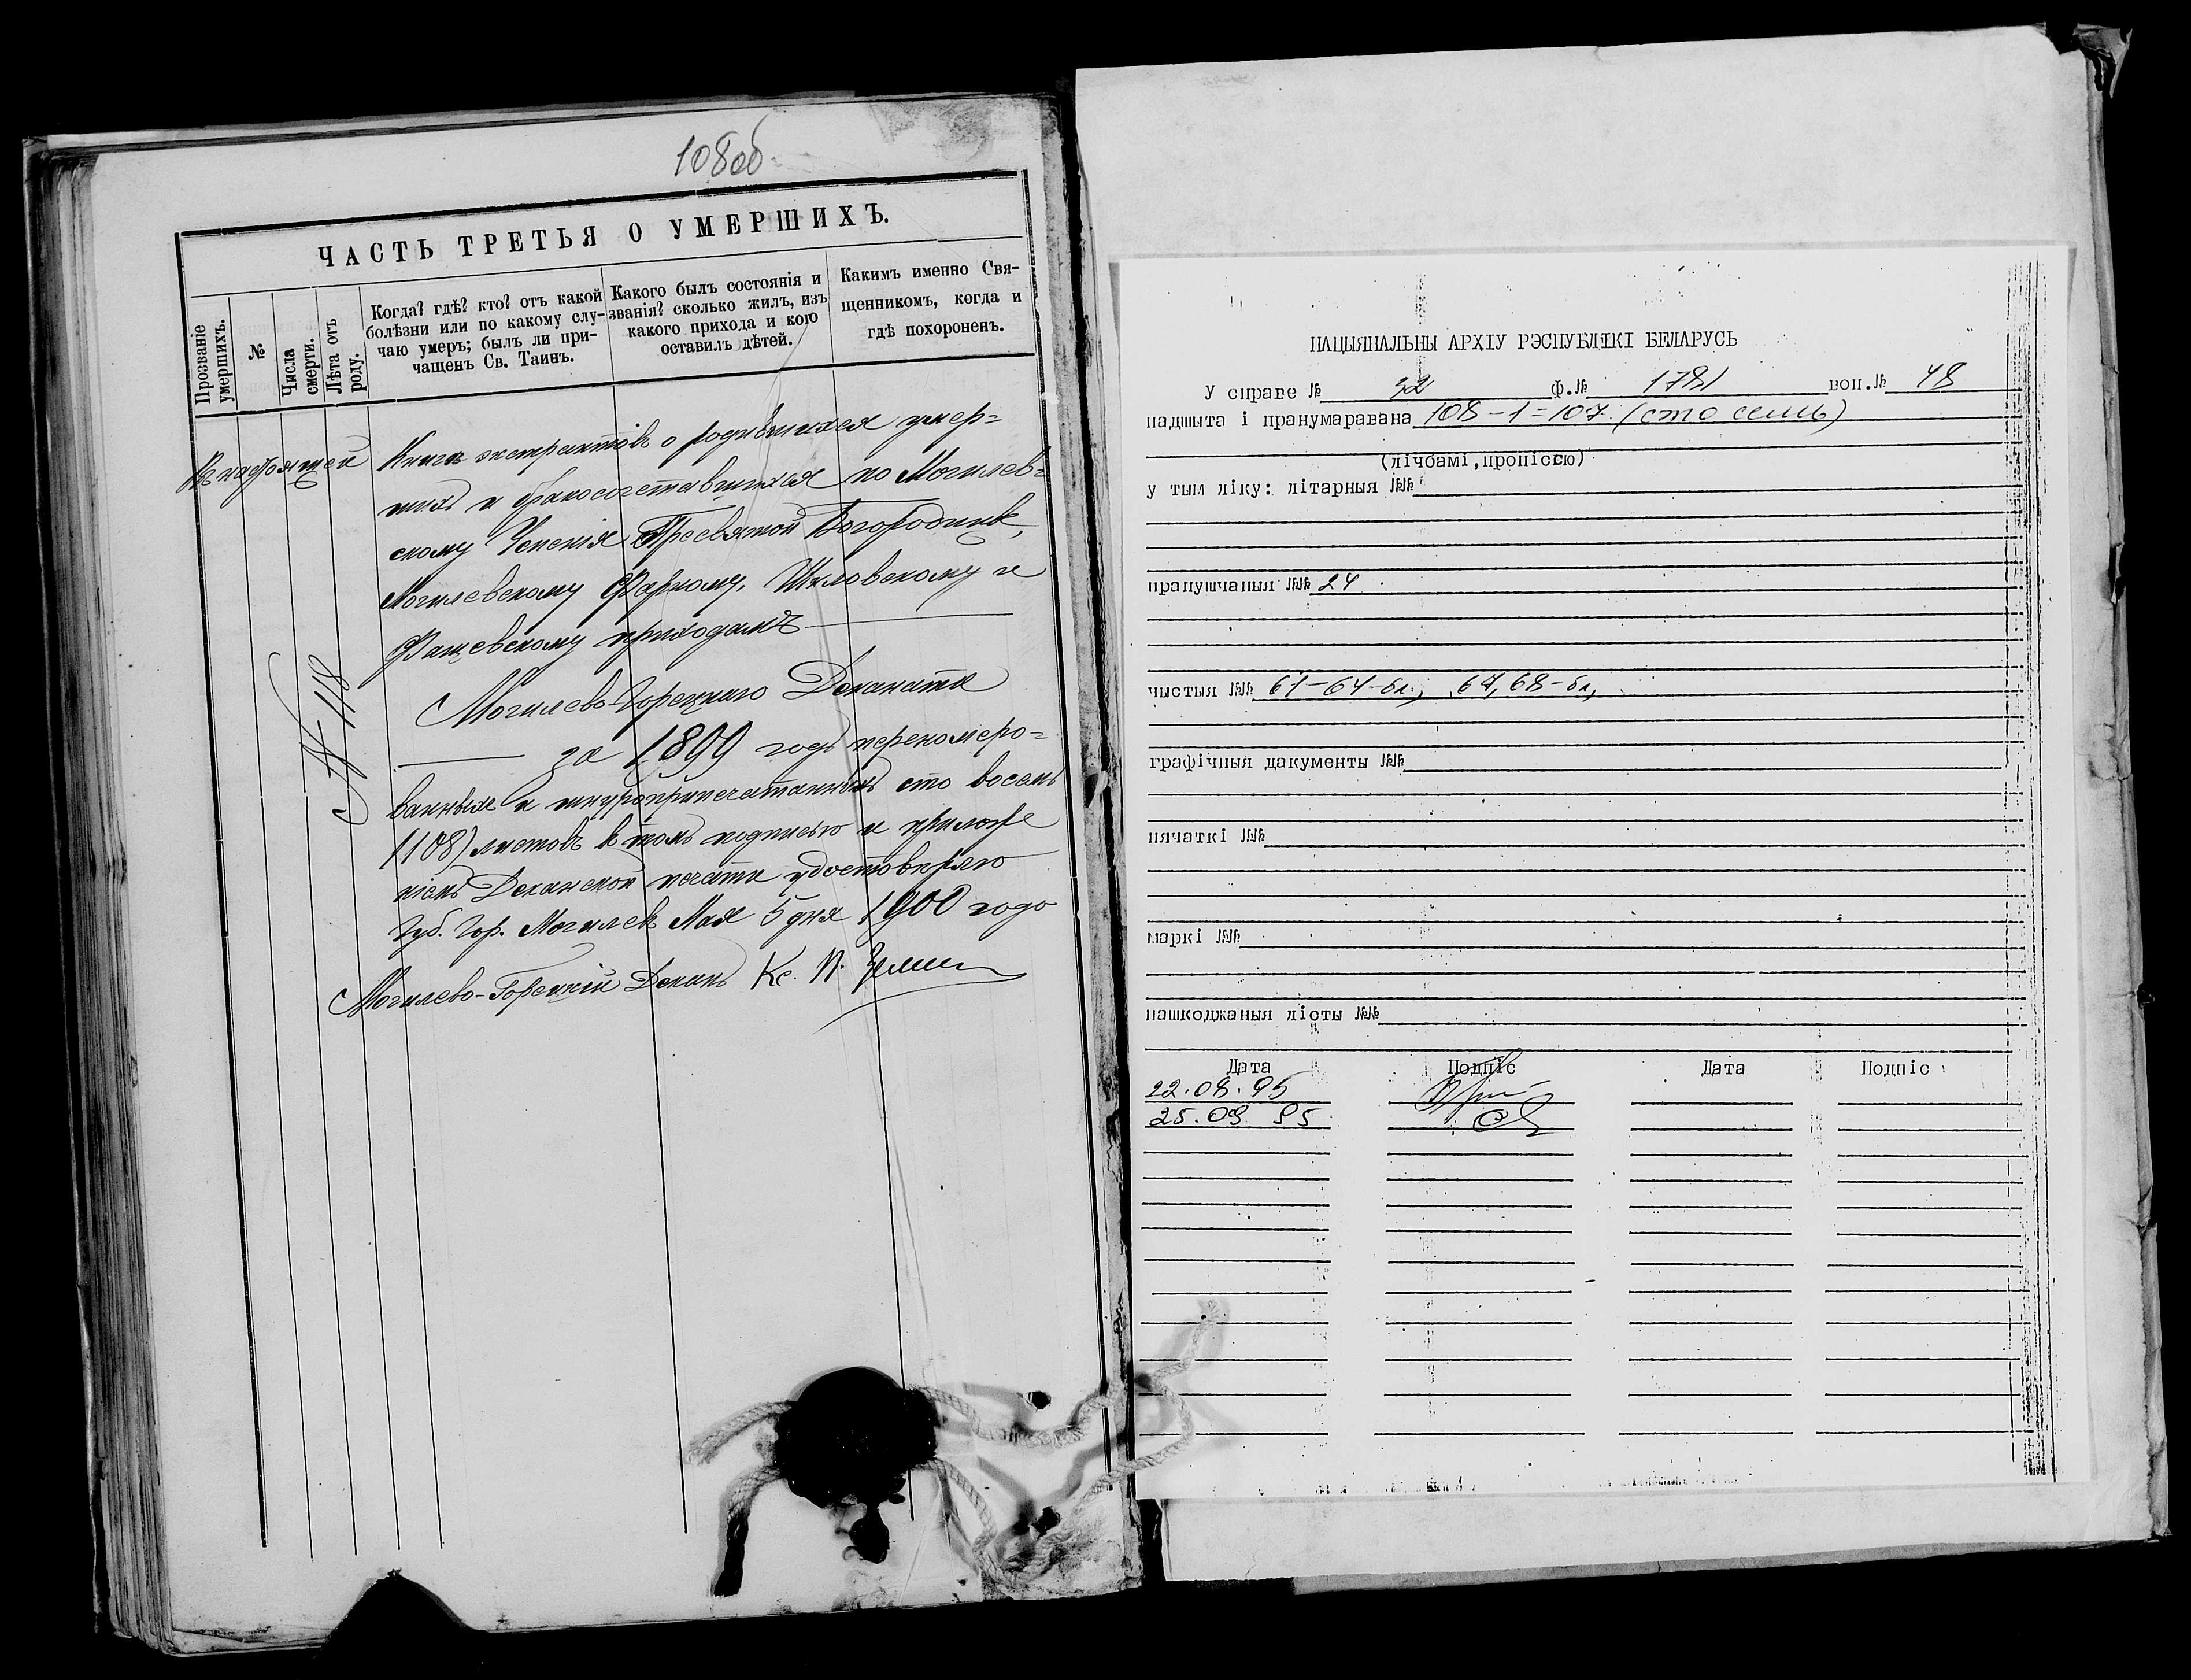 108об
ЧАСТЬ ТРЕТЬЯ О УМЕРШИХЪ.
Прозваніе умершихъ.
№
Числа смерти.
Лѣта отъ роду.
Когда? гдѣ? кто? отъ какой
болѣзни или по какому слу-
чаю умеръ; былъ ли при-
чащенъ Св. Таинъ.
Какого былъ состоянія и
званія? сколько жилъ, изъ
какого прихода и кого
оставилъ дѣтей.
Какимъ именно Свя-
щенникомъ, когда и
гдѣ похороненъ.
Въ настоящей Книгѣ экстрактовъ о родившихся умер=
шихъ и бракосочетавшихся по Могилев=
скому Успенія Пресвятой Богородицы,
Могилевскому Фарному, Шкловскому и
Фащевскому приходамъ
Могилево-Горецкаго Деканата
за 1899 годъ переномеро=
ванныхъ и шнуроприпечатанныхъ сто восемь
(108) листовъ въ томъ подписью и приложе
ніемъ Деканской печати удостовѣряю
Губ. Гор. Могилевъ Мая 5 дня 1900 года
Могилево-Горецкій Деканъ Кс. П.
№ 118
НАЦЫЯНАЛЬНЫ АРХІУ РЭСПУБЛІКІ БЕЛАРУСЬ
У справе № 32 ф.№ 1781 воп.№ 48
падшыта і пранумаравана 108-1=107 (сто семь)
(лічбамі,пропіссю)
у тым ліку: літарныя №№
прапушчаныя №№ 24
чыстыя №№ 61-64-бл., 67,68-бл,
графічныя дакументы №№
пячаткі №№
маркі №№
пашкоджаныя лісты №№
Дата Подпіс Дата Подпіс
22.08.95
25.09 95